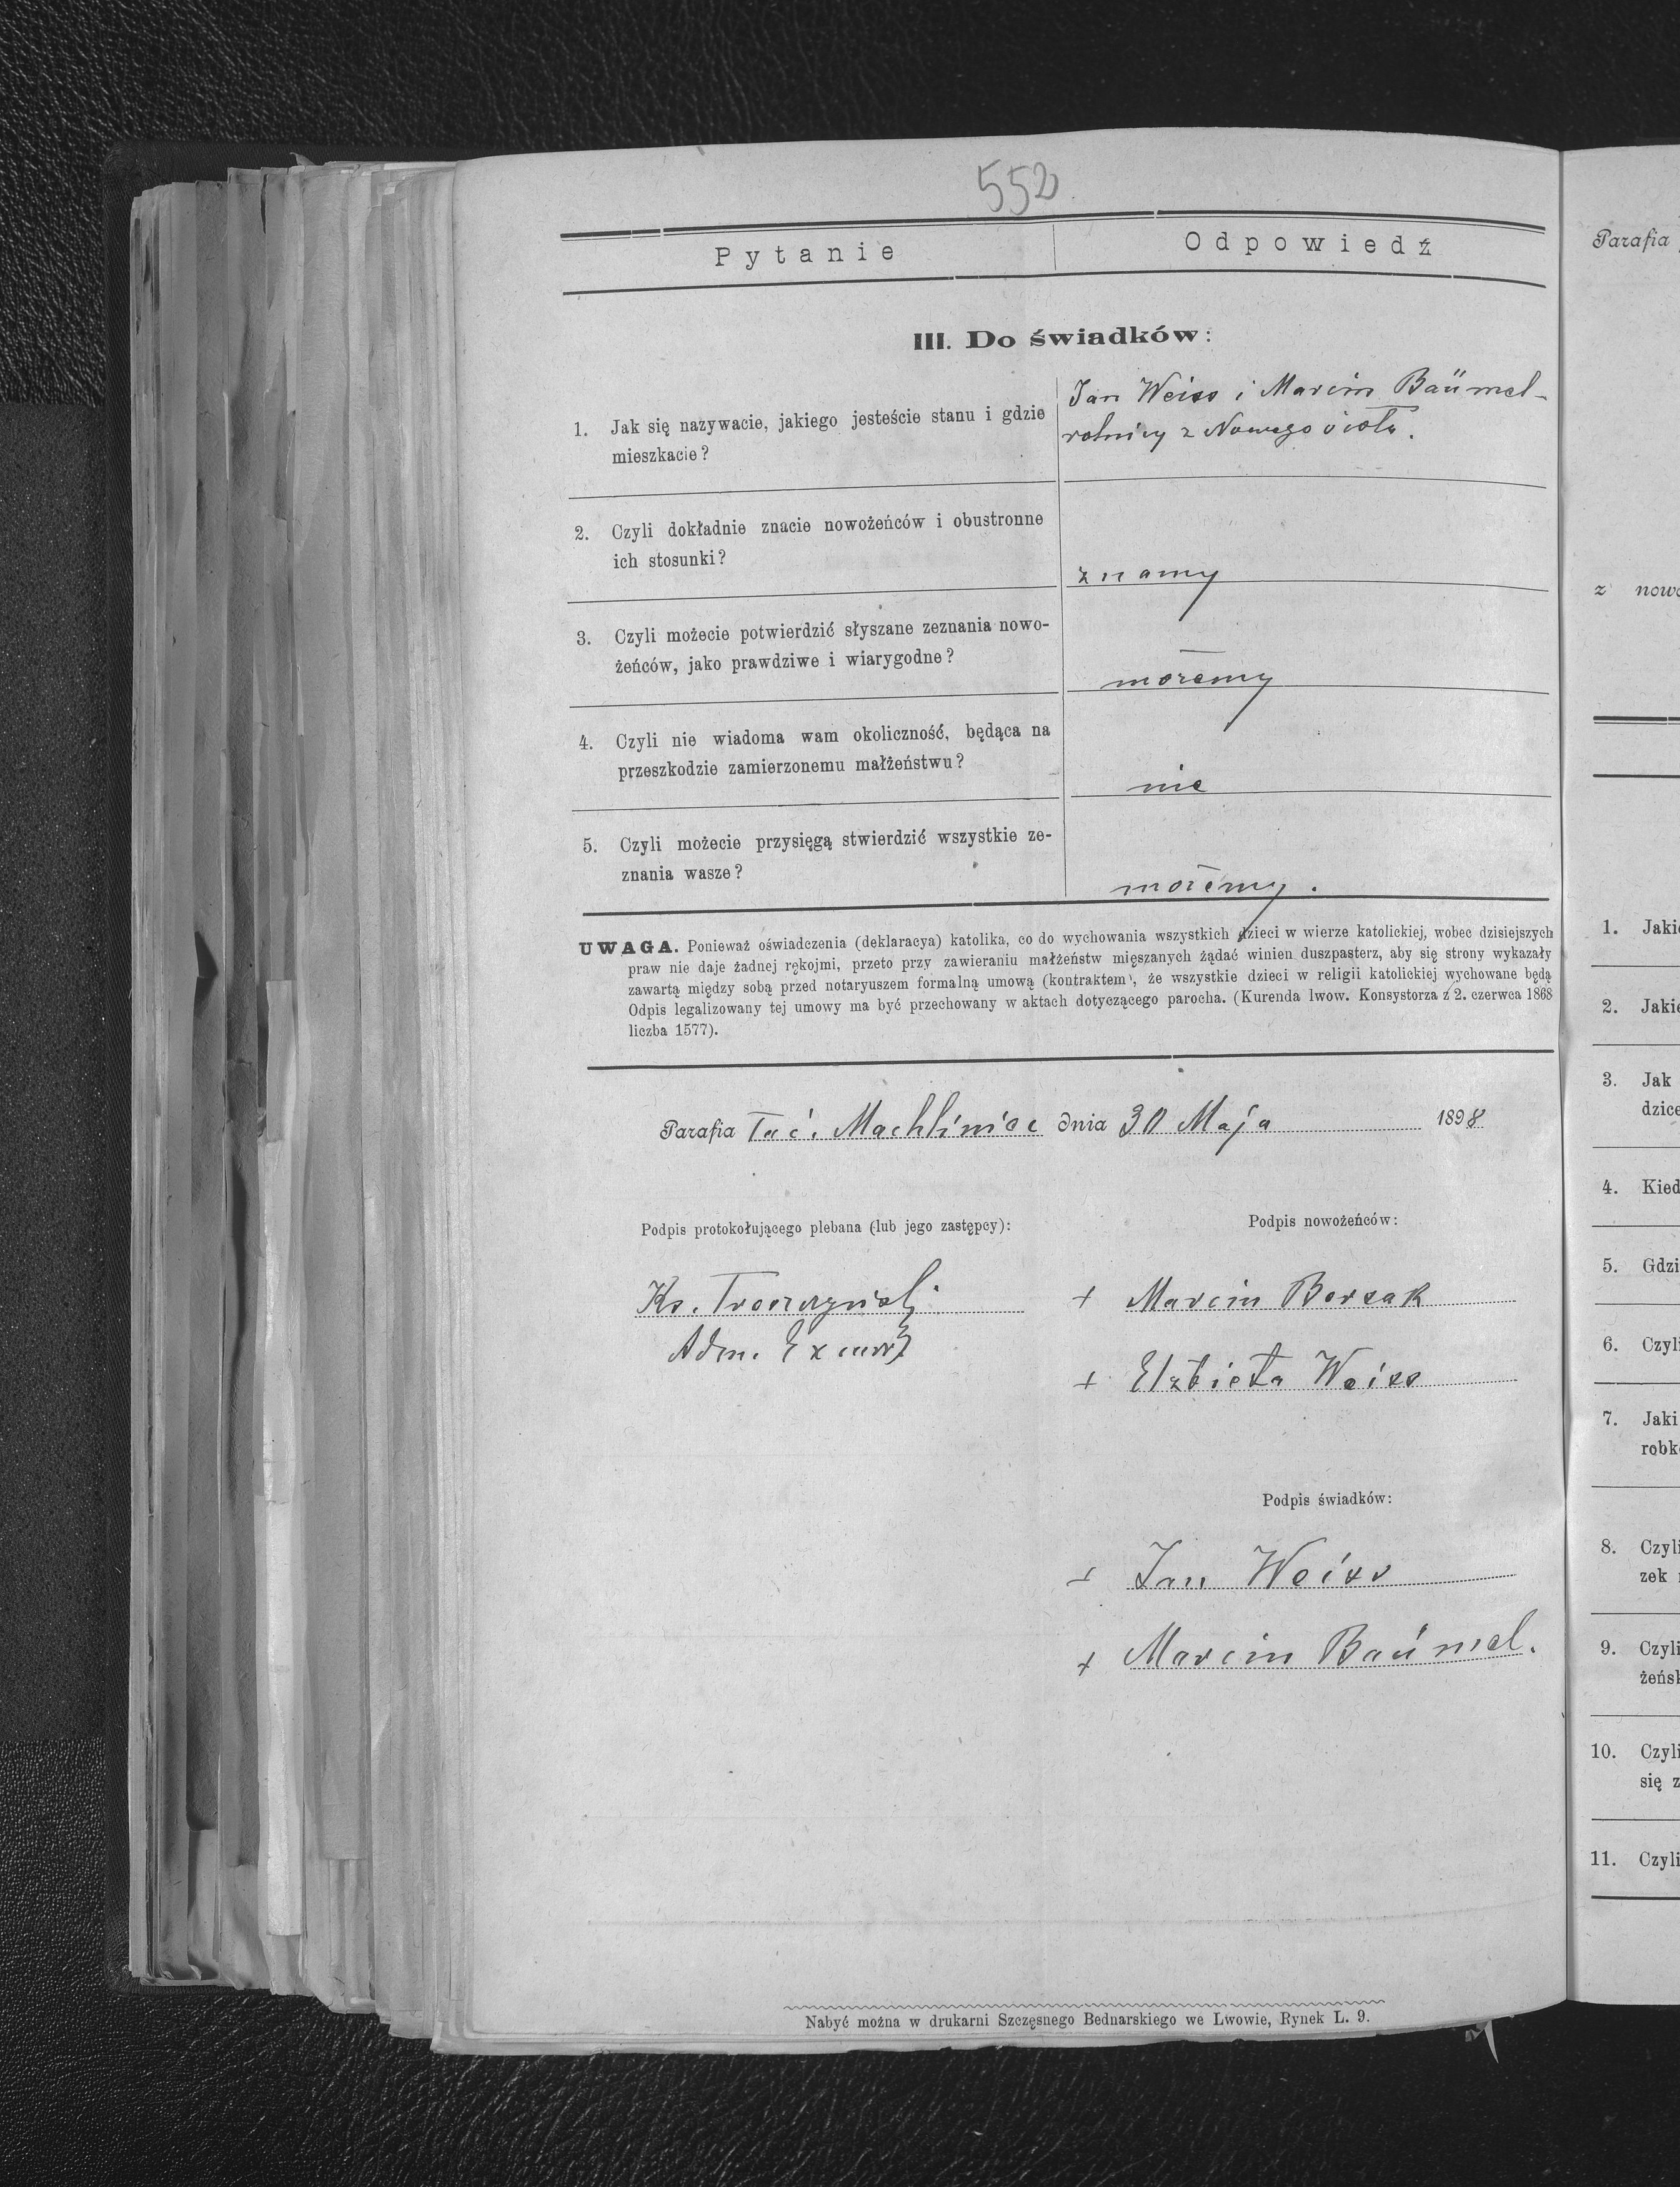 552
Pytanie
Odpowiedź
III. Do świadków:
1. Jak się nazywacie, jakiego jesteście stanu i gdzie
mieszkacie?
Jan Weiss i Marcin Baümel
rolnicy z Nowego
2. Czyli dokładnie znacie nowożeńców i obustronne
ich stosunki?
znamy
3. Czyli możecie potwierdzić słyszane zeznania nowo-
żeńców, jako prawdziwe i wiarygodne?
możemy
4. Czyli nie wiadoma wam okoliczność, będąca na
przeszkodzie zamierzonemu małżeństwu?
nie
5. Czyli możecie przysięgą stwierdzić wszystkie ze-
znania wasze?
możemy.
UWAGA. Ponieważ oświadczenia (deklaracya) katolika, co do wychowania wszystkich dzieci w wierze katolickiej, wobec dzisiejszych
praw nie daje żadnej rękojmi, przeto przy zawieraniu małżeństw mięszanych żądać winien duszpasterz, aby się strony wykazały
zawartą między sobą przed notaryuszem formalną umową (kontraktem), że wszystkie dzieci w religii katolickiej wychowane będą
Odpis legalizowany tej umowy ma być przechowany w aktach dotyczącego parocha. (Kurenda lwow. Konsystorza z 2. czerwca 1868
liczba 1577).
Parafia łać. Machliniec dnia 30 Maja 1898
Podpis protokołującego plebana (lub jego zastępcy):
Podpis nowożeńców:
Ks.
Adm.
+ Marcin Borsak
+ Elżbieta Weiss
Podpis świadków:
+ Jan Weiss
+ Marcin Baümel.
Nabyć można w drukarni Szczęsnego Bednarskiego we Lwowie, Rynek L. 9.
Parafia
z nowo
1. Jaki
2. Jaki
3. Jak
dzice
4. Kied
5. Gdzi
6. Czyli
7. Jaki
robk
8. Czyli
zek
9. Czyli
żeńsk
10. Czyli
się z
11. Czyli